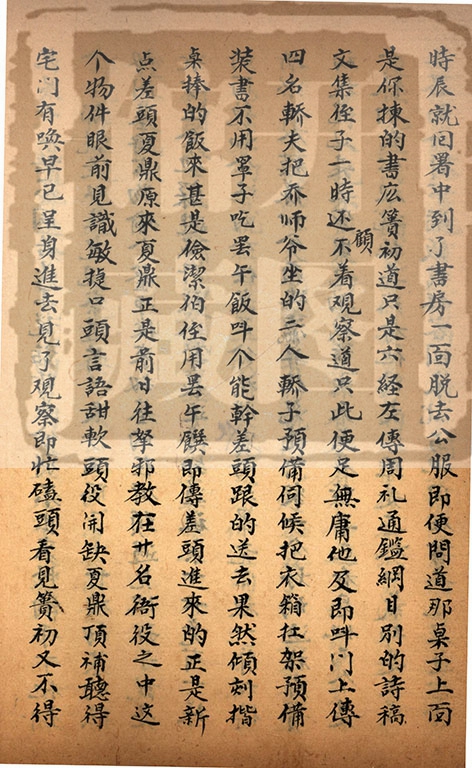 時辰就囘署中到了書房一面脫去公服即便問道那桌子上面
是你揀的書広簣初道只是六経左傳周礼通鑑綱目別的詩稿
文集侄子一時还不顧着观察道只此便足無庸他及即呌门上傳
四名轎夫把乔师爷坐的二人轎子預備伺候把衣箱扛架預備
装書不用罩子吃罢午飯呌个能幹差頭跟的送去果然傾刻揩
桌捧的飯來甚是儉潔伯侄用罢午饌即傳差頭進來的正是新
点差頭夏鼎原來夏鼎正是前日往拏邪教在廿名衙役之中这
个物件眼前見識敏捷口頭言語甜軟頭役開缺夏鼎頂補聽得
宅门有喚早已呈身進去見了观察即忙磕頭看見簣初又不得